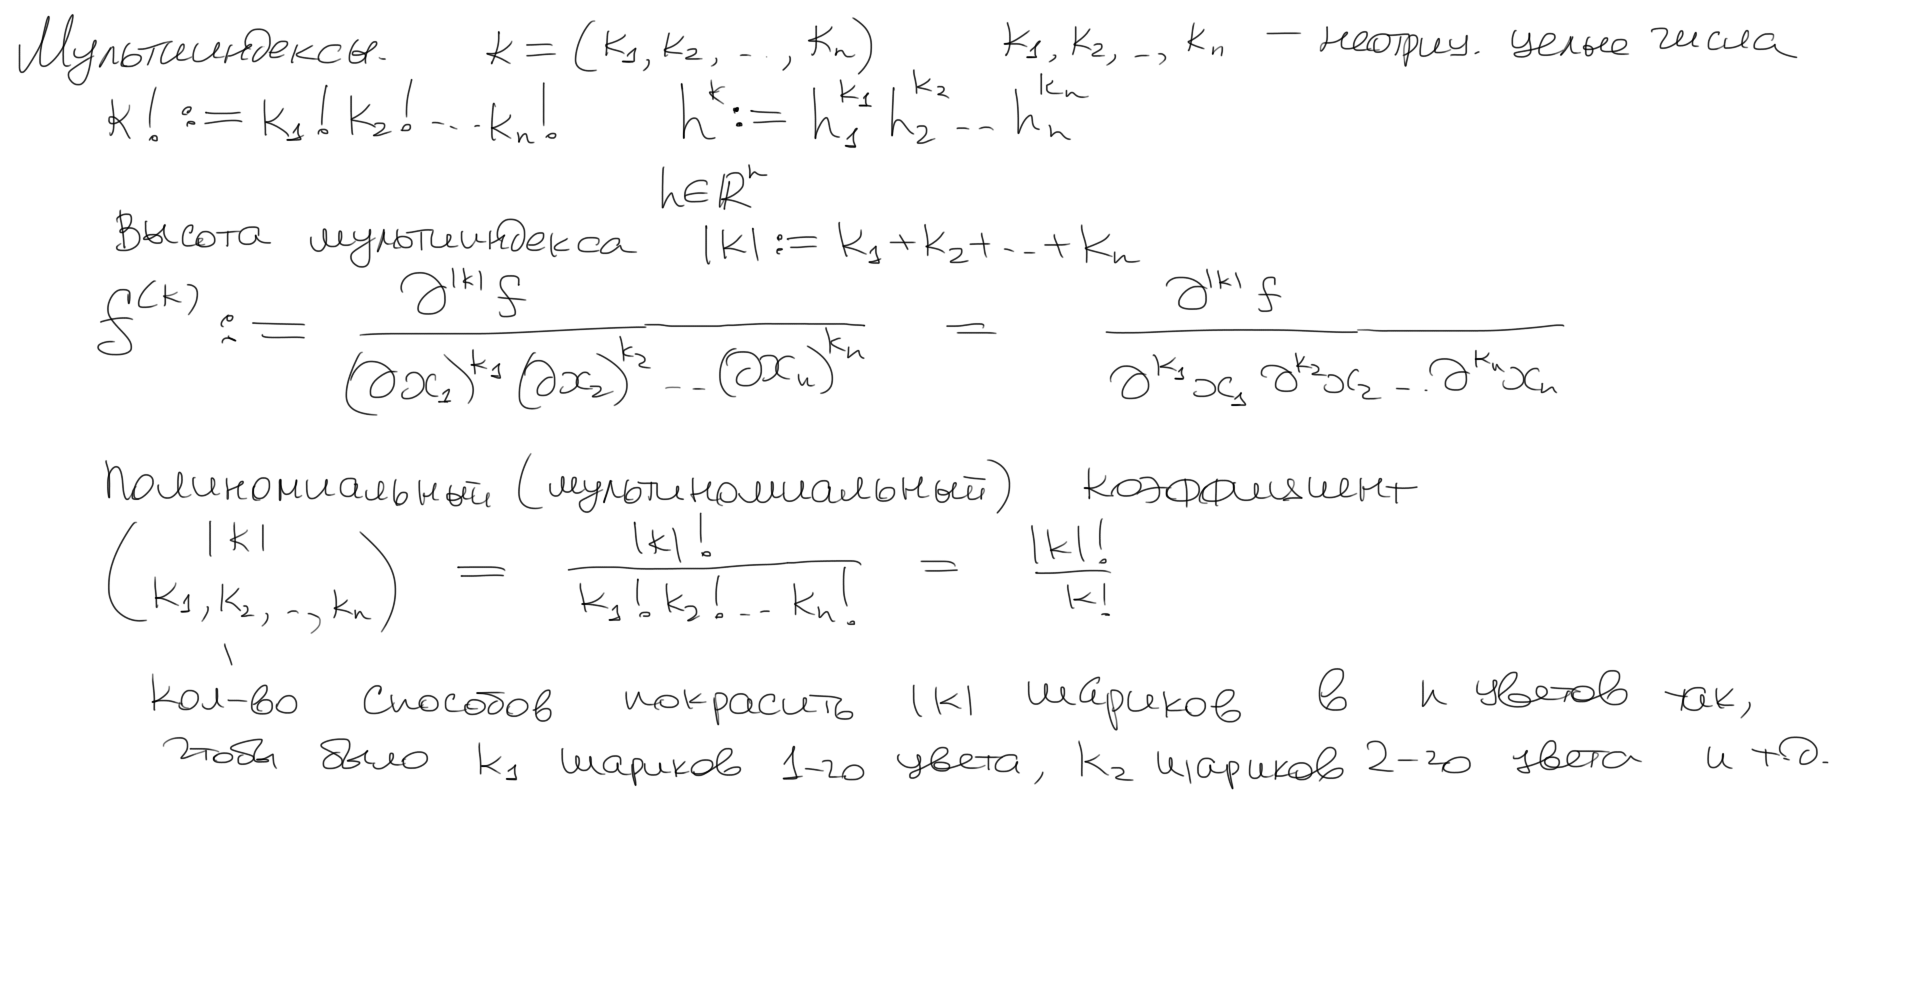 Мультииндексы. k = (k₁, k₂, ..., kₙ) k₁, k₂, .., kₙ – неотриц. целые числа
k! := k₁! k₂! ... kₙ! h^k := h₁^{k₁} h₂^{k₂} ... hₙ^{kₙ}
h∈ℝⁿ
Высота мультииндекса |k| := k₁+k₂+...+kₙ
f^{(k)} := ∂^{|k|} f / ((∂x₁)^{k₁} (∂x₂)^{k₂} ... (∂xₙ)^{kₙ}) = ∂^{|k|} f / (∂^{k₁}x₁ ∂^{k₂}x₂ ... ∂^{kₙ}xₙ)
Полиномиальный (мультиномиальный) коэффициент
(|k| над k₁, k₂, .., kₙ) = |k|! / (k₁! k₂! ... kₙ!) = |k|! / k!
кол-во способов покрасить |k| шариков в n цветов так,
чтобы было k₁ шариков 1-го цвета, k₂ шариков 2-го цвета и т.д.